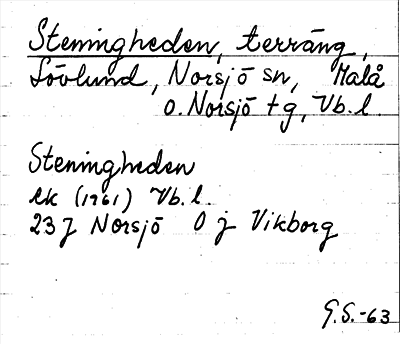 Steningheden, terräng,
Lövlund, Norsjö sn, Malå
o. Norsjö tg, Vb. l.
Steningheden
ek (1961) Vb. l.
23 J Norsjö 0 j Vikborg
G.S.-63